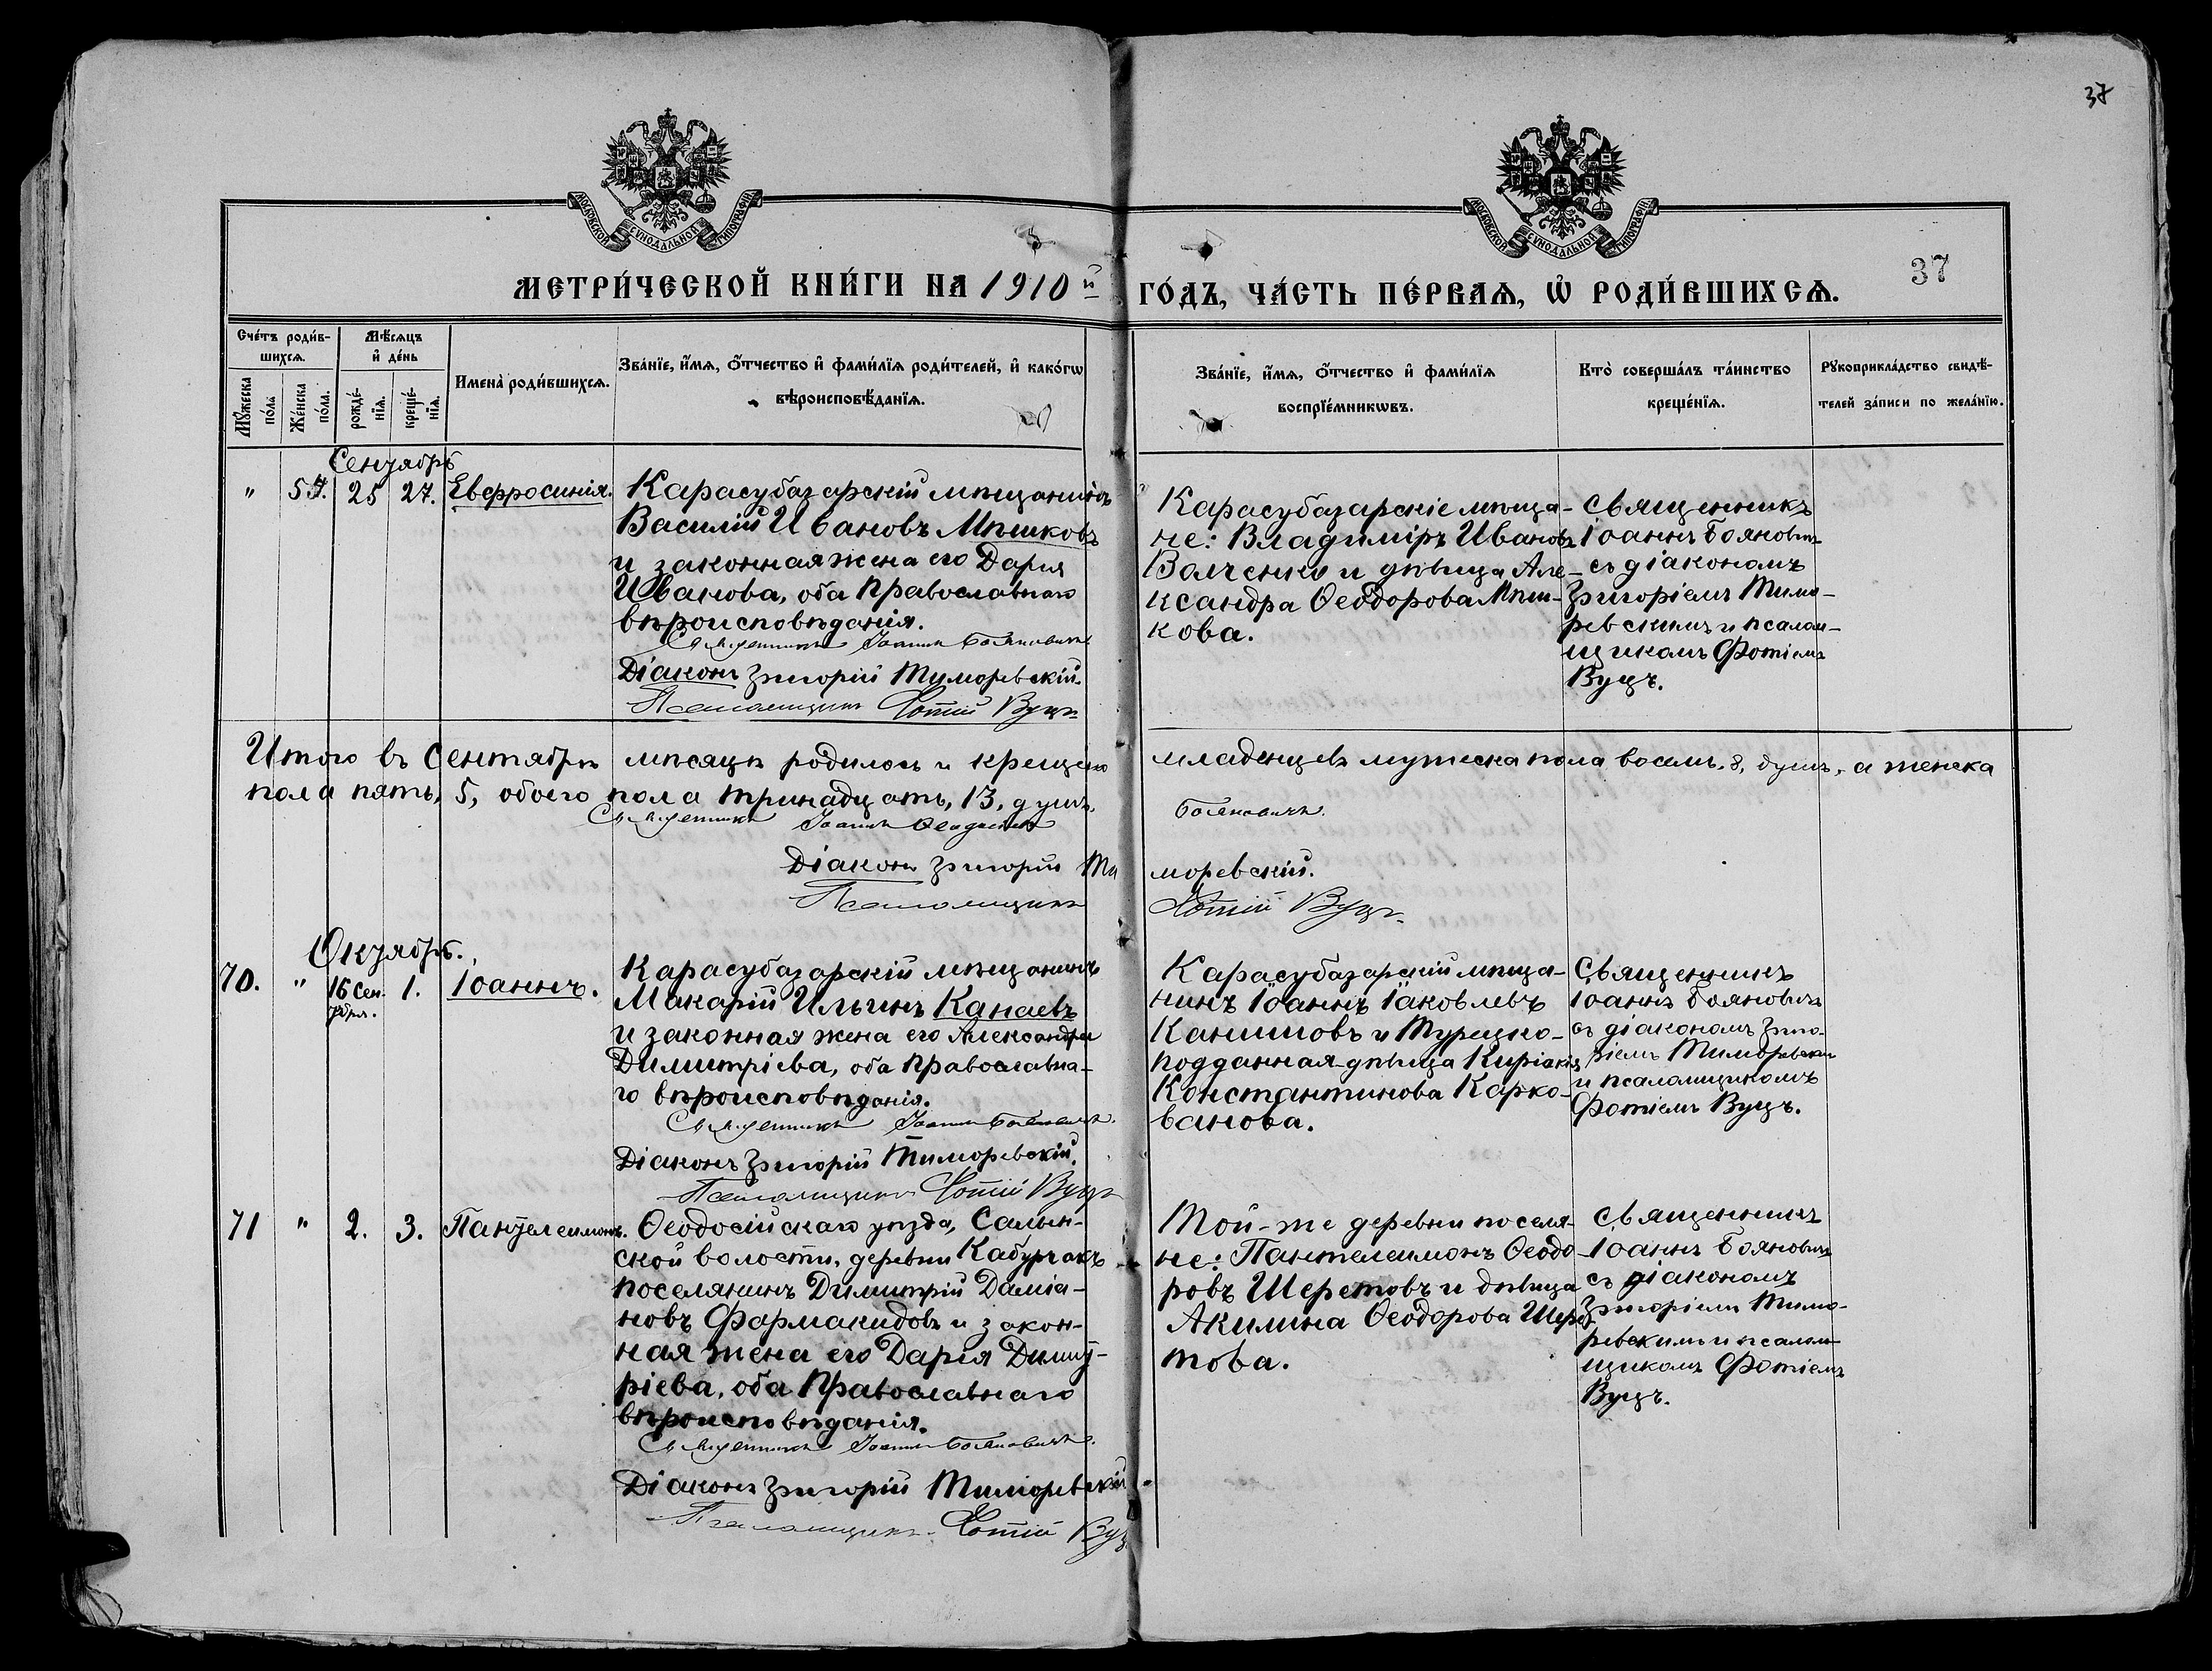 37
МОСКОВСКОЙ СѴНОДАЛЬНОЙ ТИПОГРАФІИ
МОСКОВСКОЙ СѴНОДАЛЬНОЙ ТИПОГРАФІИ
37
МЕТРИ́ЧЕСКОЙ КНИ́ГИ НА 1910 й ГО́ДЪ, ЧА́СТЬ ПЕ́РВАѦ, Ѡ҆ РОДИ́ВШИХСѦ.
Сче́тъ роди́в-
шихсѧ.
Мꙋ́жеска по́ла
Же́нска по́ла.
Мѣ́сѧцъ
и҆ де́нь
рожде́-
нїѧ.
креще́-
нїѧ.
Имена̀ роди́вшихсѧ.
Зва́нїе, и҆́мѧ, ѻ҆́тчество и҆ фами́лїѧ роди́телей, и҆ како́гѡ
вѣроисповѣ́данїѧ.
Зва́нїе, и҆́мѧ, ѻ҆́тчество и҆ фами́лїѧ
воспрїе́мникѡвъ.
Кто̀ соверша́лъ та́инство
креще́нїѧ.
Рꙋкоприкла́дство свидѣ́-
телей за́писи по жела́нїю.
Сентябрь
" 57. 25 27. Евфросинія.
Карасубазарскій мѣщанинъ
Василій Ивановъ Мѣшковъ
и законная жена его Дарія
Иванова, оба Православнаго
вѣроисповѣданія.
Священникъ Іоаннъ Бояновичъ
Діаконъ Григорій Тиморевскій.
Псаломщикъ Фотій Вуцъ
Карасубазарскіе мѣща-
не: Владиміръ Ивановъ
Волченко и дѣвица Але-
ксандра Ѳеодорова Мѣш-
кова.
Священникъ
Іоаннъ Бояновичъ
съ діакономъ
Григоріемъ Тимо-
ревскимъ и псалом-
щикомъ Фотіемъ
Вуцъ.
Итого въ Сентябрѣ мѣсяцѣ родилось и крещено младенцевъ мужеска пола восемь, 8, душъ, а женска
пола пять, 5, обоего пола тринадцать, 13, душъ.
Священникъ Іоаннъ Бояновичъ.
Діаконъ Григорій Тиморевскій.
Псаломщикъ Фотій Вуцъ
Октябрь.
70. " 16 Сен-
тября. 1. Іоаннъ.
Карасубазарскій мѣщанинъ
Макарій Ильинъ Канаевъ
и законная жена его Александра
Димитріева, оба Православна-
го вѣроисповѣданія.
Священникъ Іоаннъ Бояновичъ.
Діаконъ Григорій Тиморевскій.
Псаломщикъ Фотій Вуцъ
Карасубазарскій мѣща-
нинъ Іоаннъ Іаковлевъ
Каншовъ и Турецко-
подданная дѣвица Киріакія
Константинова Карко-
ванова.
Священникъ
Іоаннъ Бояновичъ
съ діакономъ Григо-
ріемъ Тиморевским
и псаломщикомъ
Фотіемъ Вуцъ.
71 " 2. 3. Пантелеимонъ.
Ѳеодосійскаго уѣзда, Салын-
ской волости, деревни Кабурчакъ
поселянинъ Димитрій Даміа-
новъ Фармакидовъ и закон-
ная жена его Дарія Димит-
ріева, оба Православнаго
вѣроисповѣданія.
Священникъ Іоаннъ Бояновичъ.
Діаконъ Григорій Тиморевскій
Псаломщикъ Фотій Вуц
Той-же деревни поселя-
не: Пантелеимонъ Ѳеодо-
ровъ Шеретовъ и дѣвица
Акилина Ѳеодорова Шере-
това.
Священникъ
Іоаннъ Бояновичъ
съ діакономъ
Григоріемъ Тимо-
ревскимъ и псалом-
щикомъ Фотіемъ
Вуцъ.